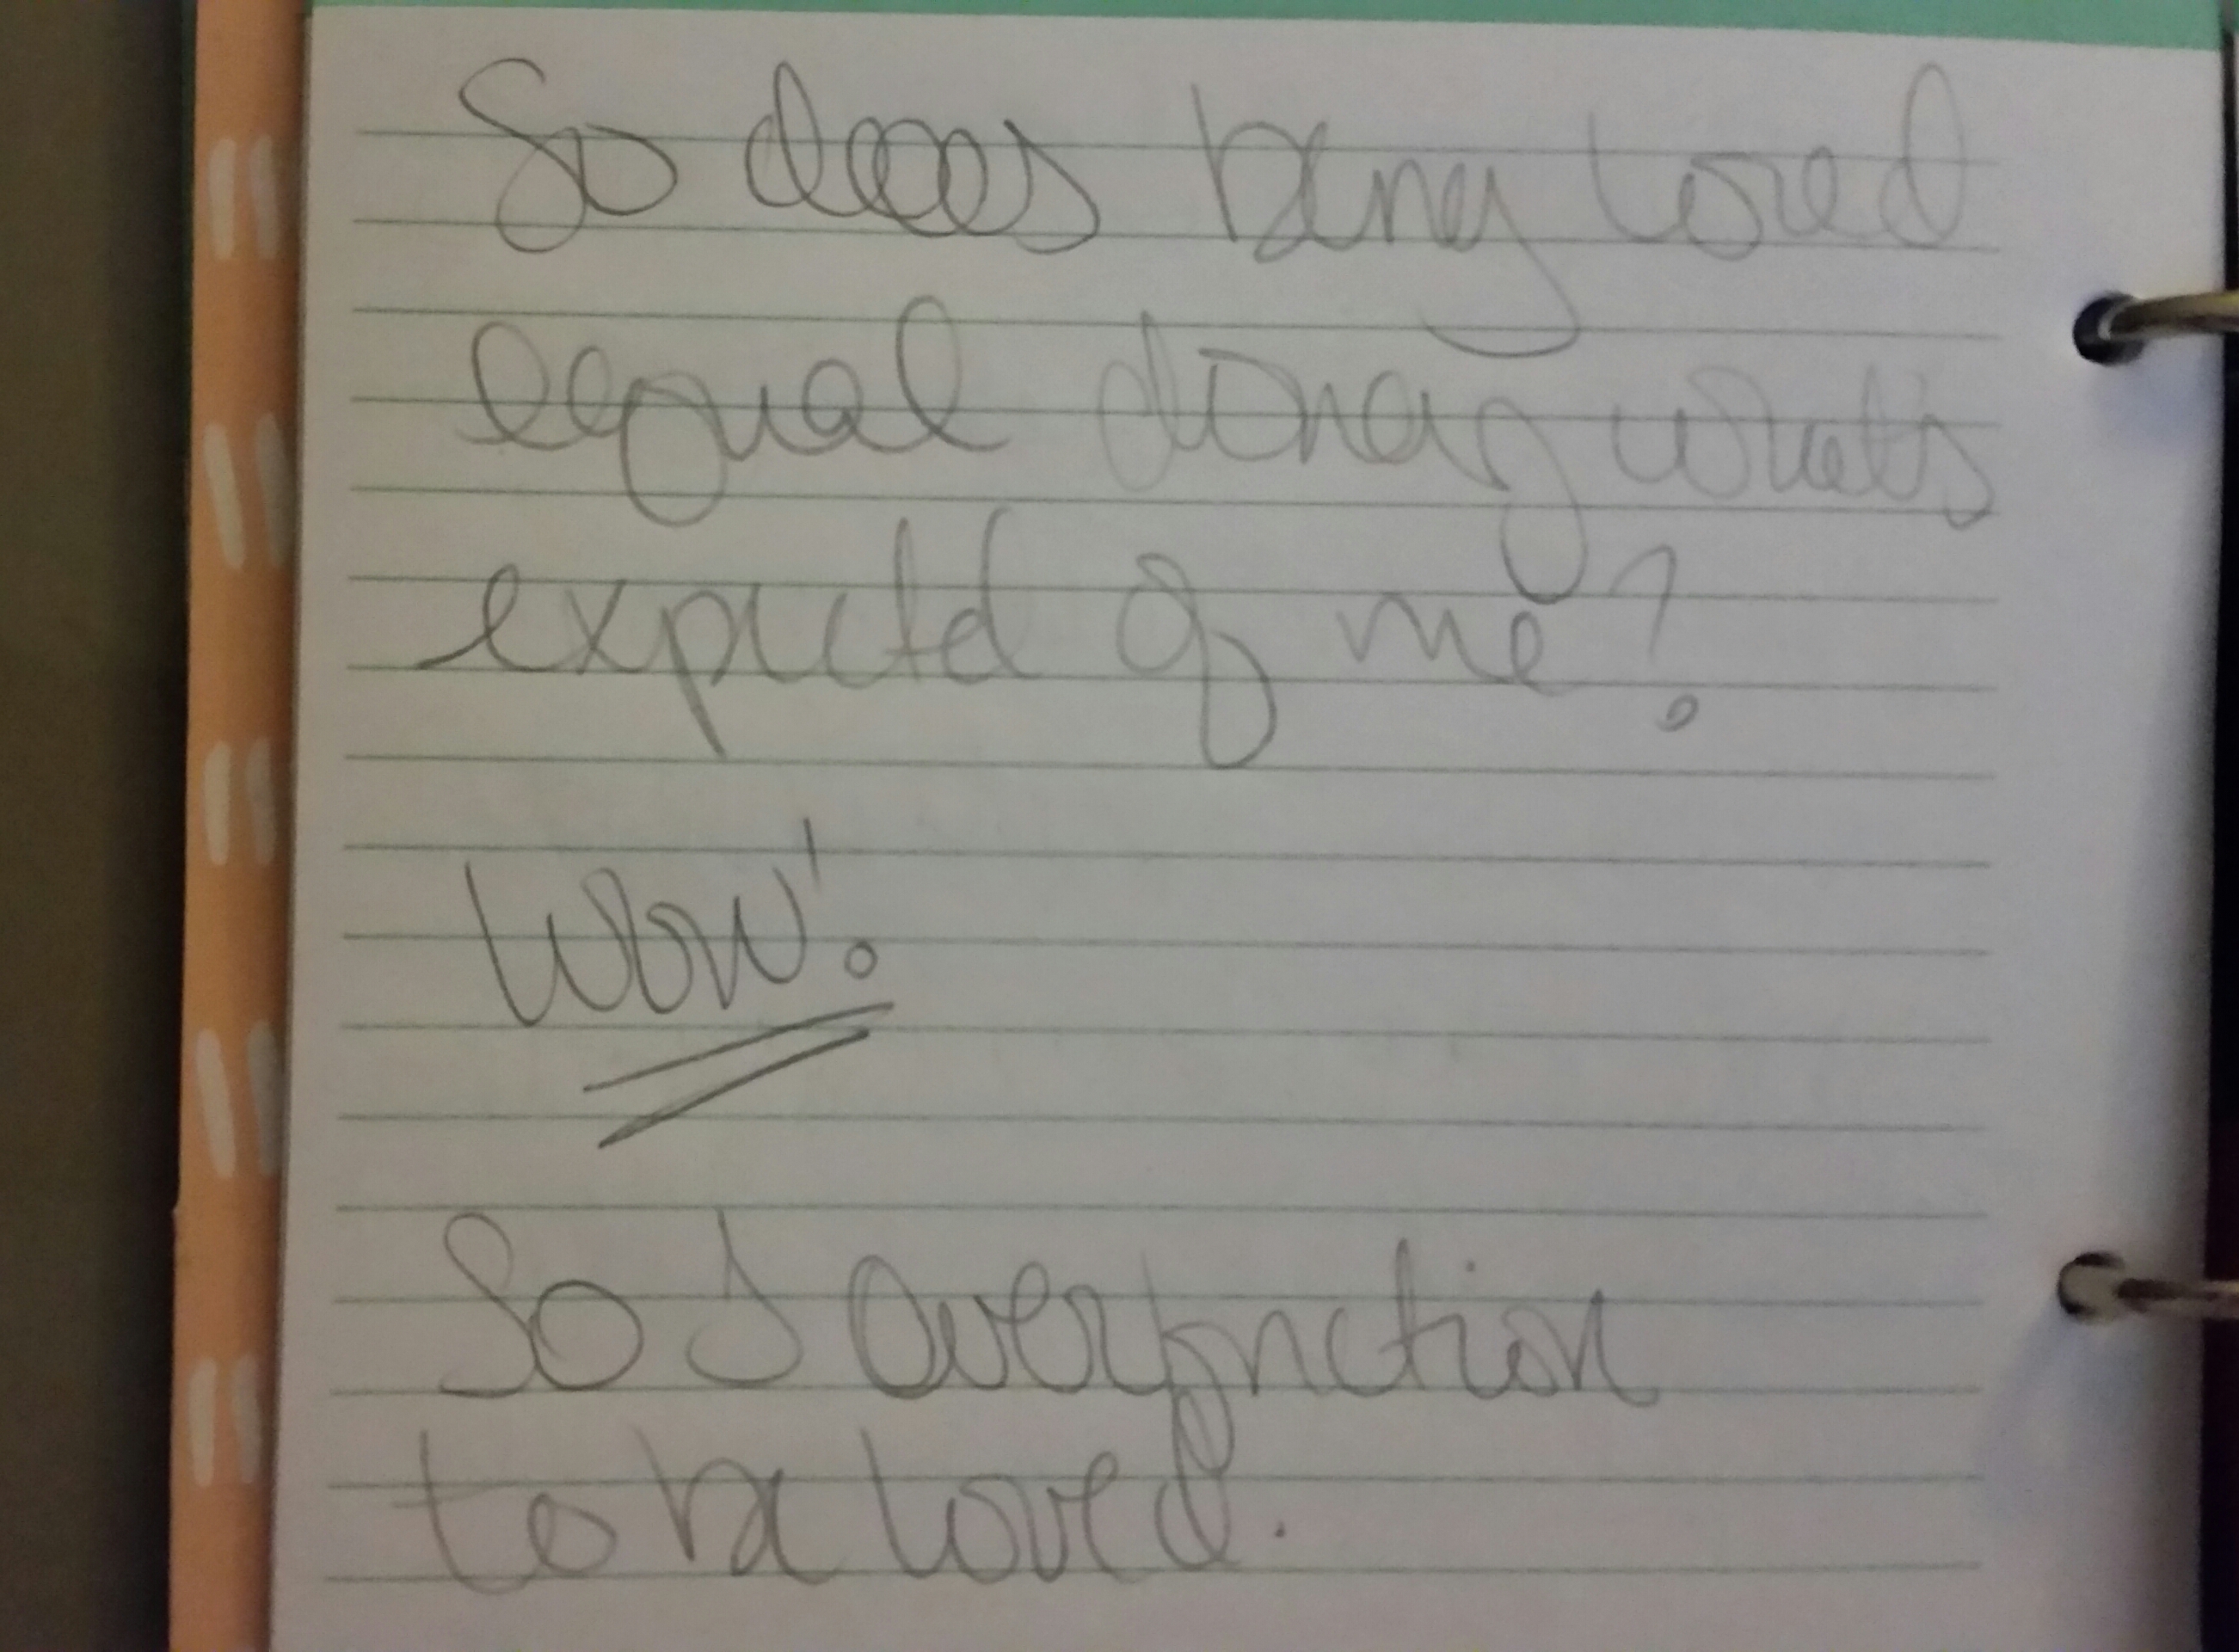 So does being loved
equal doing what's
expected of me?
Wow!
So I overfunction
to be loved.